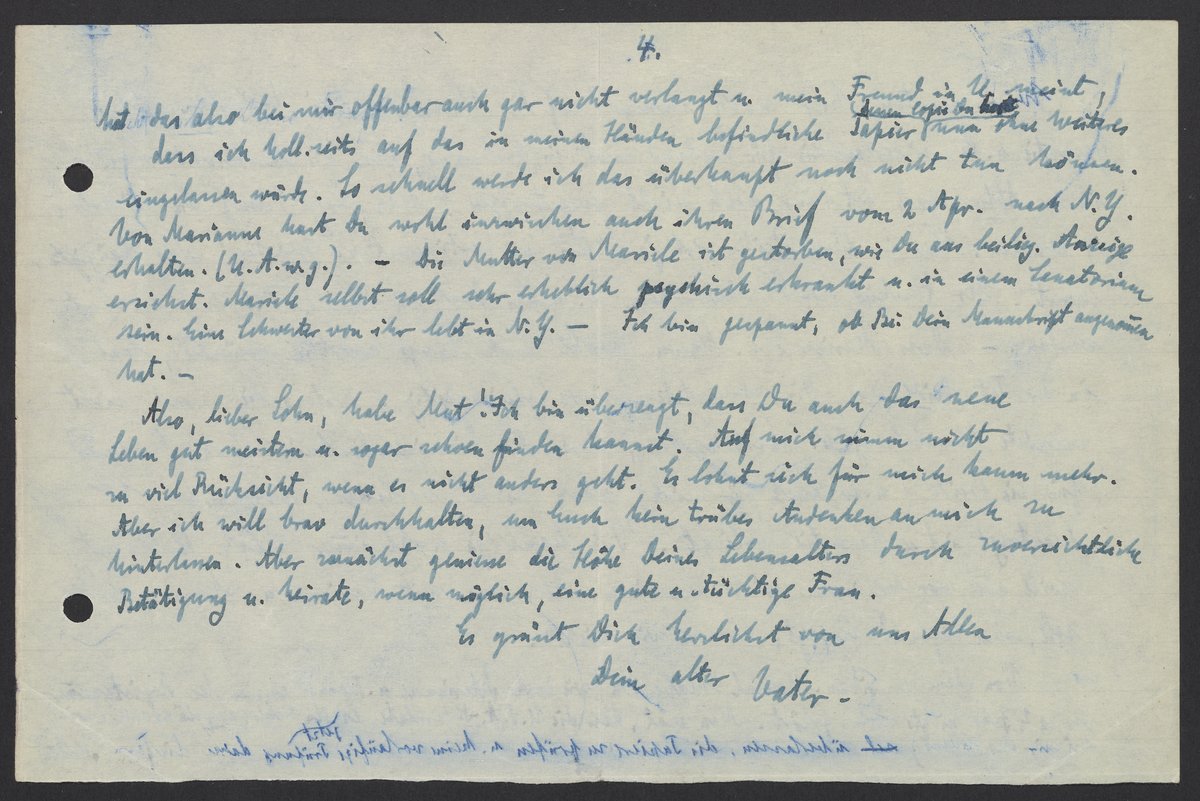 4.
hat das also bei mir offenbar auch gar nicht verlangt u. mein Freund in U. meint,
dass ich holl.seits auf das in meinen Händen befindliche Papier (dessen Copie Du hast) nun ohne weiteres
eingelassen würde. So schnell werde ich das überhaupt noch nicht tun können.
Von Marianne hast Du wohl inzwischen auch ihren Brief vom 2 Apr. nach N.Y.
erhalten. (U.A.w.g.). – Die Mutter von Mariele ist gestorben, wie Du aus beilieg. Anzeige
ersiehst. Mariele selbst soll sehr erheblich psychisch erkrankt u. in einem Sanatorium
sein. Eine Schwester von ihr lebt in N.Y. – Ich bin gespannt, ob Dein Manuskript angenommen
hat. –
Also, lieber Sohn, habe Mut! Ich bin überzeugt, dass Du auch das neue
Leben gut meistern u. sogar schoen finden kannst. Auf mich nimm nicht
zu viel Rücksicht, wenn es nicht anders geht. Es lohnt sich für mich kaum mehr.
Aber ich will brav durchhalten, um Euch kein trübes Andenken an mich zu
hinterlassen. Aber zunächst geniesse die Höhe Deines Lebensalters durch zuversichtliche
Betätigung u. heirate, wenn möglich, eine gute u. tüchtige Frau.
Es grüsst Dich herzlichst von uns Allen
Dein alter Vater –
überlassen, die Papiere zu prüfen u. keine vorläufige Prüfung